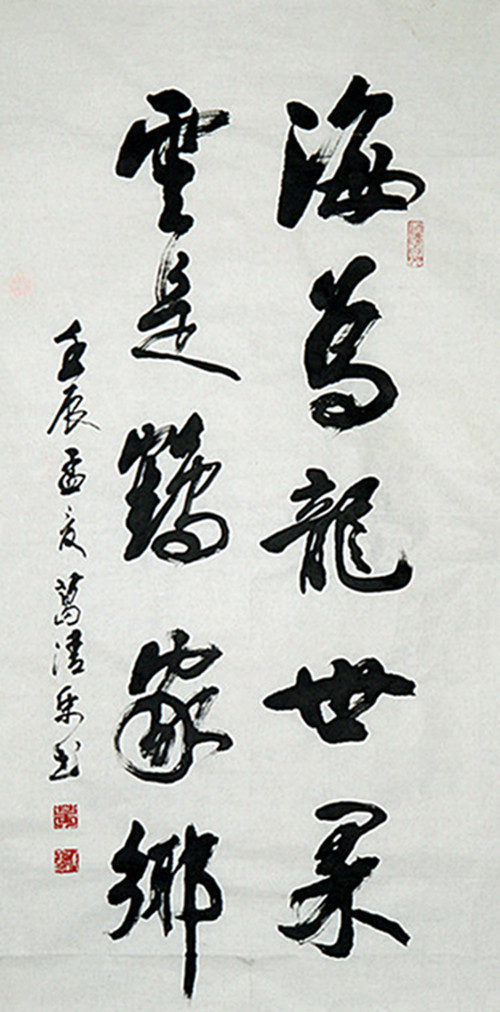 海為龍世界
雲是鶴家鄉
壬辰孟夏葛清泉书